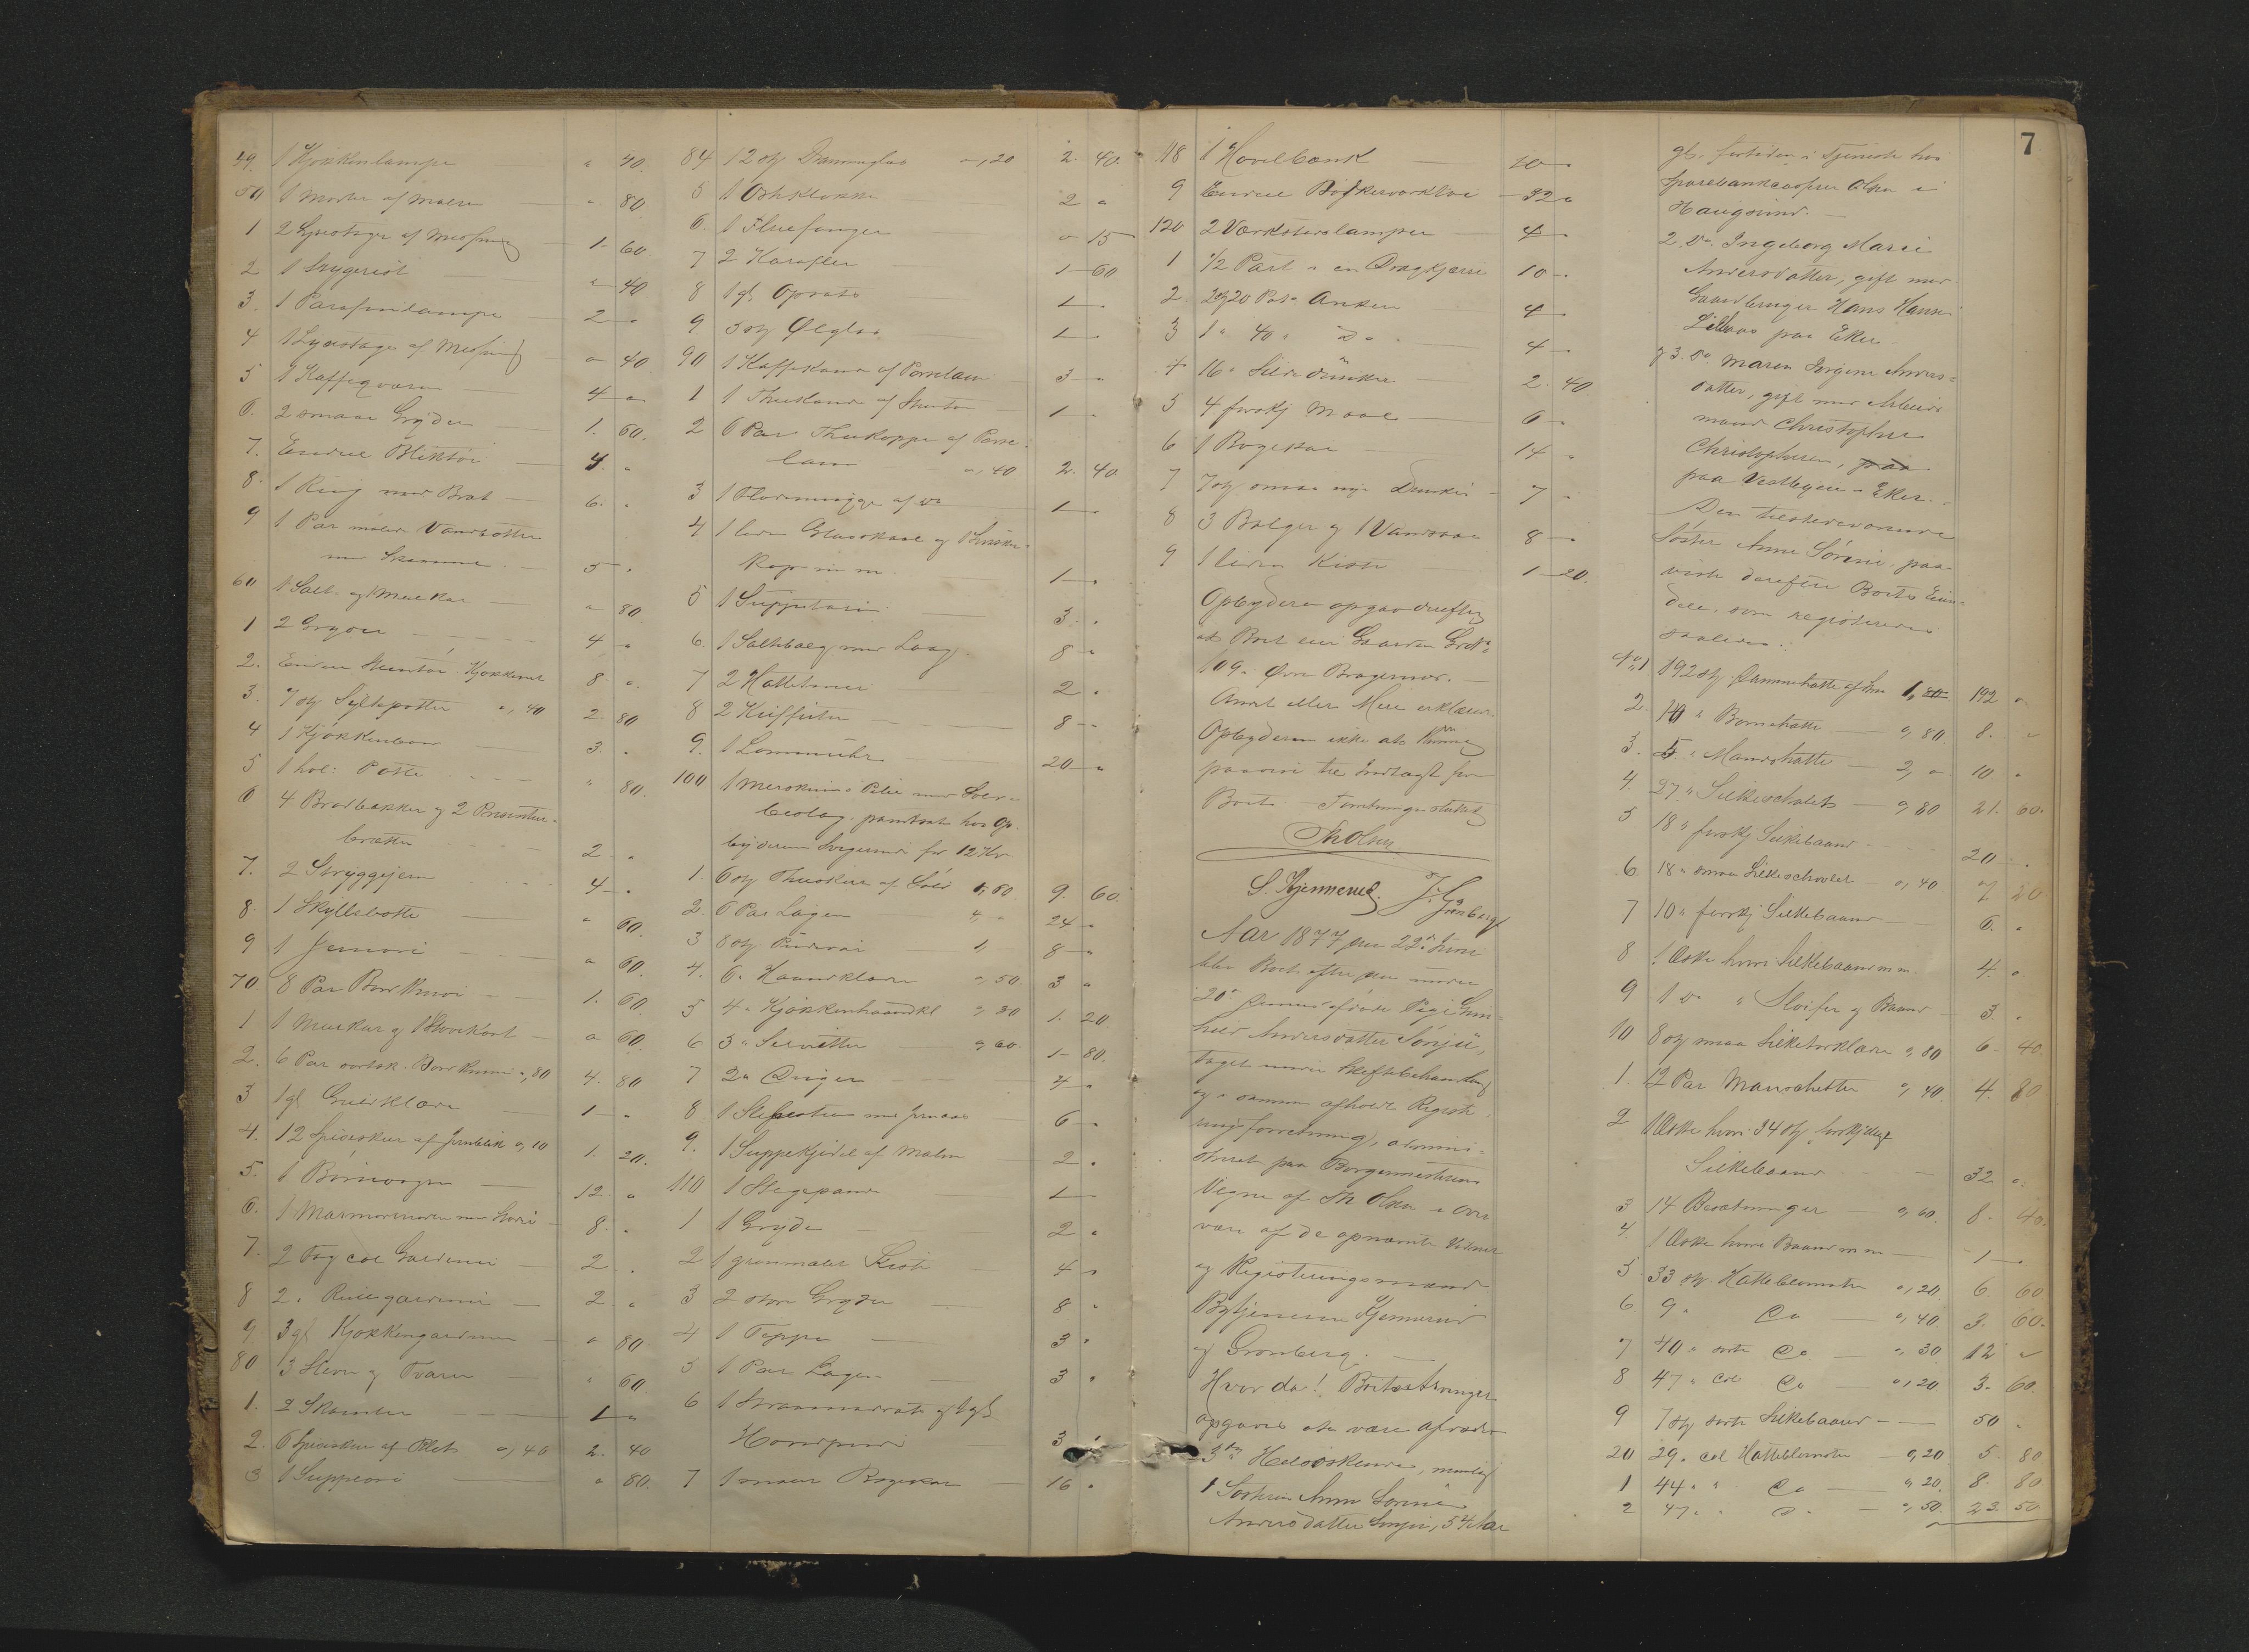 7
49. 1 Kjøkkenlampe " 40.
50 1 Morter af Malm " 80
1 2 Lysestager af Messing 1. 60
2 1 " 40
3. 1 Parafinlampe 2 "
4 1 Lysestage af Messing " 40
5 1 Kaffeqværn 4 "
6. 2 smaae Gryder 1. 60.
7. Endeel Bliktøi 4. "
8. 1 Ring med Brat 6. "
9 1 Par malede Vandbøtter
med 5 "
60 1 Salt og Melkar " 80
1 2 Gryder 4 "
2. Endeel Steentøi i Kjøkkenet 8. "
3. 7 stk Syltepotter ", 40 2. 80
4 1 Kjøkkenbord 3. "
5 1 hol: Potte " 80.
6 4 Brødbakker og 2 Presenteer-
brætter 2 "
7. 2 Strygejern 4 "
8. 1 Skyllebøtte " 60.
9 1 " 60.
70 8 Par Bordknive 1. 60
1 1 og 1 " 60.
2. 6 Par sortsk. Bordknive ", 80 4. 80
3 1 gl 1 "
4. 12 Spiseskeer af Jernblik ", 10 1. 20.
5. 1 Børnevogn 12 "
6. 1 8. "
7. 2 Fag col Gardiner 2 "
8 2 " Rullegardiner 2 "
9 3 gl Kjøkkengardiner " 80
80 3 " 60.
1. 2 Skamler 1 "
2. 6 Spiseskeer af Plet ", 40 2. 40
3 1 Suppeøse " 80.
84 12 stk Dramseglas ", 20 2. 40.
5 1 Osteklokke 2 "
6. 1 Fluefanger " 15
7 2 Karafler 1 60
8 1 gl Opsats 1 "
9. 5 stk Ølglas 1 "
90 1 Kaffekande af Porcelain 3 "
1 1 Theekande af Steentøi 1 "
2 6 Par Theekopper af Porce-
lain ", 40. 2. 40
3 1 Flødemugge af do 1 "
4 1 liden Glasskaal og 1 Sukker-
kop m m. 1 "
5 1 Suppeterin 3. "
6. 1 Saltebalg med Laag 8 "
7 2 2. "
8 2 Kufferter 8 "
9. 1 Lommeuhr 20 "
100 1 Merskums Pibe med Sølv-
beslag, pantsat hos Op-
byderen for 12 Kr
1. 6 stk Theeskeer af Sølv 1, 60 9. 60.
2. 6 Par Lagen 4, " 24 "
3 8 stk Pudevar 1, 8 "
4. 6 " Haandklæder ", 50 3 "
5 4 " Kjøkkenhaandkl ", 30 1. 20
6 3 " Servietter ", 60 1. 80.
7 2 " Duger 4 "
8 1 Slibesteen 6 "
9. 1 Suppekjedel af Malm 2 "
110 1 Stegepande 1 "
1 1 Gryde 2 "
2 1 grønmalet Kiste 4 "
3 2 store Gryder 8 "
4 1 Teppe 3 "
5 1 Par Lagen 3 "
6 1 Straamadrats og 1 gl
Hovedpude 3 "
7 1 malet Bryggekar 16 "
118 1 Høvelbænk 10 "
9 Endeel Bødkerværktøi 32 "
120 2 Værkstedslamper 4 "
1 1/2 Part i en Dragkjærre 10 "
2 2 stk 20 Pots Anker 4 "
3 1 " 40 " Do 4 "
4 16 " Sildedunker 2. 40.
5 4 forskj Maal 6 "
6 1 Bryggekar 14 "
7 7 stk smaa nye Dunker 7 "
8 3 Balger og 1 Vandsaa 8 "
9 1 liden Kiste 1 20.
Opbyderen opgav derefter
at Boet eier Gaarden Grd No
109. Øvre Bragernes.
Andet eller Mere erklærede
Opbyderen ikke at kunne
paavise til Indtægt for
Boet. Forretningen sluttet
Th Olsen
S. Kjennerud. J. Grønberg
Aar 1877 den 22de Juni
blev Boet efter den under
20de dennes afdøde Pige Gun-
hild Andersdatter Sønju,
taget under Skiftebehandling
og i samme afholdt Registe-
ringsforretning, admini-
streret paa Borgermesterens
Vegne af Th Olsen i Over-
være af de opnævnte Vidner
og Registeringsmænd
Bytjenerne Kjennerud
og Grønberg.
Hvor da! Boets Arvinger
opgaves at være afdødes
3de Helsøskende, nemlig
1 Søsteren Anne Sørine
Andersdatter Sønju, 54 Aar
gl. fortiden i Tjeneste hos
Sparebankkasserer Olsen i
Haugsund.
2. Do. Ingeborg Marie
Andersdatter, gift med
Gaardbruger Hans Hansen
Lilleaas paa Eker.
og 3. Do. Maren Jørgine Anders-
datter, gift med Arbeids-
mand Christopher
Christophersen, paa
paa Vestbyen i Eker.
Den tilstedeværende
Søster Anne Sørine paa-
viste derefter Boets Eien-
dele, som registeredes
saaledes:
No 1 192 stk. Damehatte af Straa 1, 80 192 "
2 10 " Børnehatte ", 80. 8. "
3. 5 " Mandshatte 2, " 10 "
4. 27 " Silkeschalets ", 80 21. 60.
5 18 " forskj Silkebaand 20 "
6 18 " smaa Silkeschavler ", 40 7 20
7 10 " forskj Silkebaand 6. "
8 1 Æske hvori Silkebaand m m. 4. "
9 1 do " Sløifer og Baand 3. "
10 8 stk smaa Silketørklæder ", 80 6. 40.
1. 12 Par Manschetter ", 40. 4. 80
2 1 Æske hvori 34 stk forskjelligt
Silkebaand 32 "
3 14 Besætninger ", 60. 8. 40.
4. 1 Æske hvori Baand m m 1 "
5 33 stk. Hatteblomster ", 20 6. 60
6. 9 " Do ", 40 3. 60.
7 40 " sorte Do ", 30 12 "
8 47 " col Do ", 20. 3. 60.
9 7 stk sorte Silkebaand 50 "
20 29 " col Hatteblomster ", 20 5. 80
1 44 " " Do ", 20. 8. 80
2 47 " " Do ", 50. 23. 50